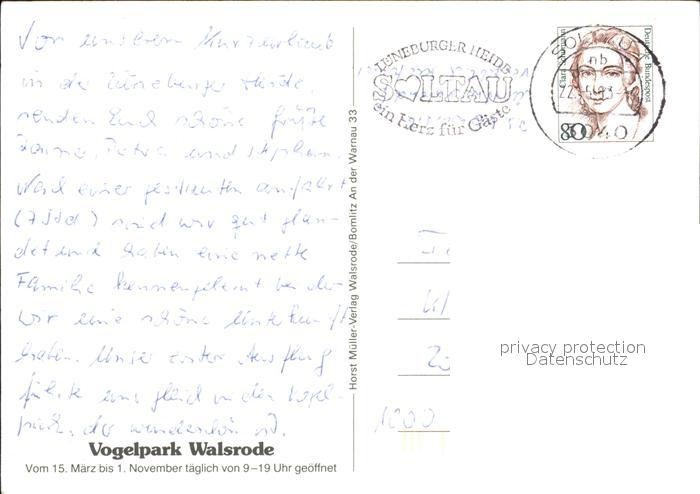 Von unserem Kurzurlaub
in der Lüneburger Heide
senden Euch schöne Grüße
Petra und Stephan.
Nach einer gestreuten Anfahrt
(7 Std) sind wir gut glan-
det und haben eine nette
Familie kennengelernt bei der
wir eine schöne Unterkunft
haben. Unser erster Ausflug
führte uns gleich in den Vogel-
park, der wunderschön ist.
Vogelpark Walsrode
Vom 15. März bis 1. November täglich von 9–19 Uhr geöffnet
Horst Müller-Verlag Walsrode/Bomlitz An der Warnau 33
LÜNEBURGER HEIDE
SOLTAU
ein Herz für Gäste
SOLTAU
nb
3040
Deutsche Bundespost
80
1000
privacy protection
Datenschutz